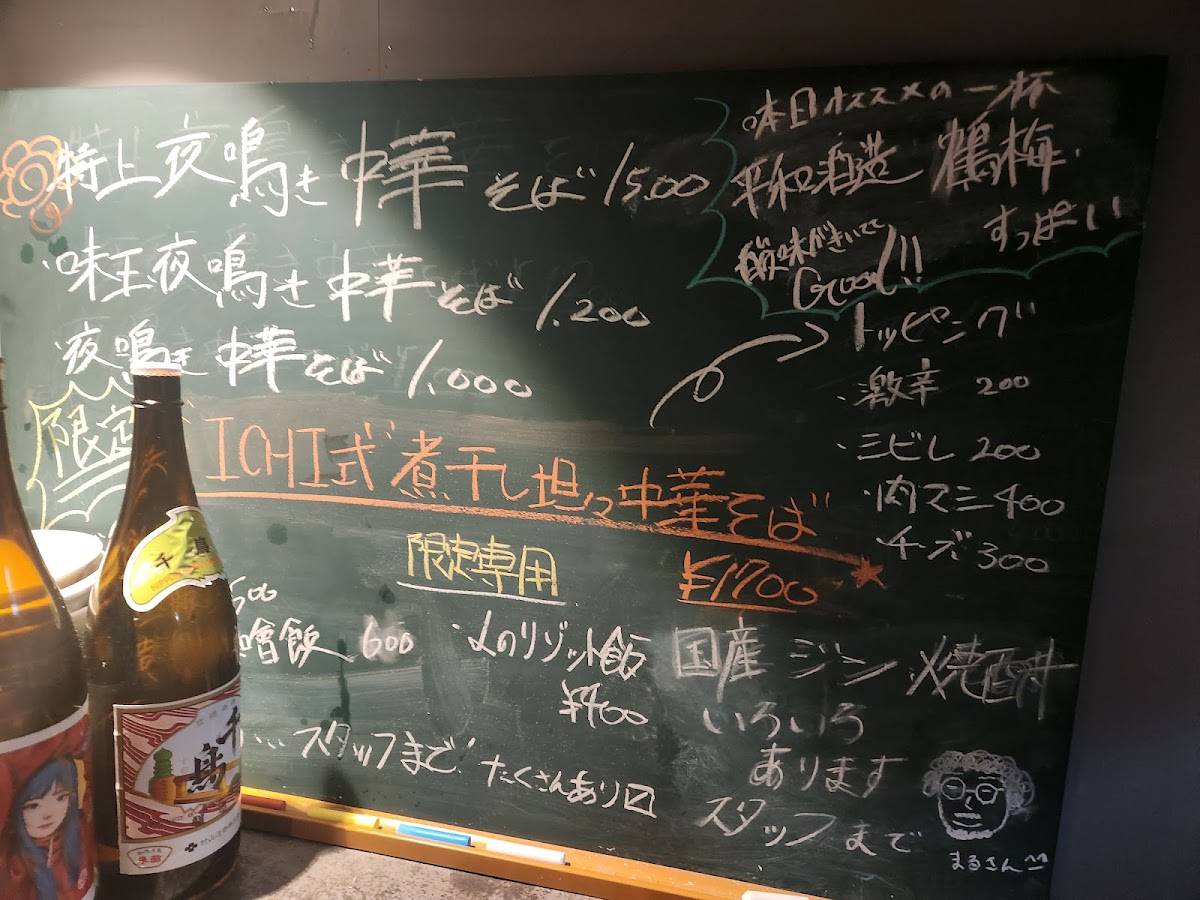 特上夜鳴き中華そば 1,500
・味玉夜鳴き中華そば 1.200
・夜鳴き中華そば 1.000
限定
ICHI式煮干し坦々中華そば
¥1700
限定専用
本日オススメの一杯
平和酒造 鶴梅
すっぱい
酸味がきいてて
Good!!
トッピング
・激辛 200
・シビレ 200
・肉マシ 400
・チーズ 300
500
噌飯 600
・〆のリゾット飯
¥400
スタッフまで
たくさんあり〼
国産ジン 焼酎
いろいろ
あります
スタッフまで
まるさん
千鳥
千鳥